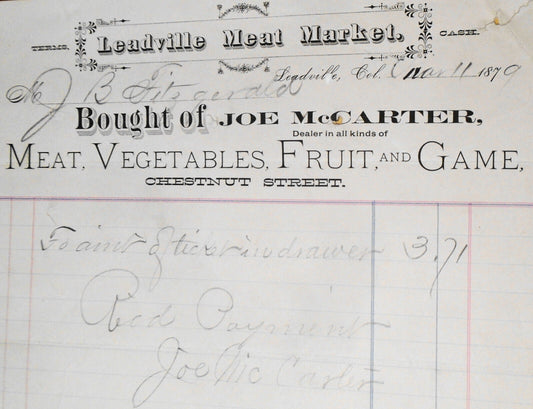 Leadville Meat Market.
TERMS, CASH.
Leadville, Col. Mar 11 1879
M J B Fitzgerald
Bought of JOE McCARTER,
Dealer in all kinds of
MEAT, VEGETABLES, FRUIT, AND GAME,
CHESTNUT STREET.
To amt of ticket in drawer 3.71
Recd Payment
Joe Mc Carter